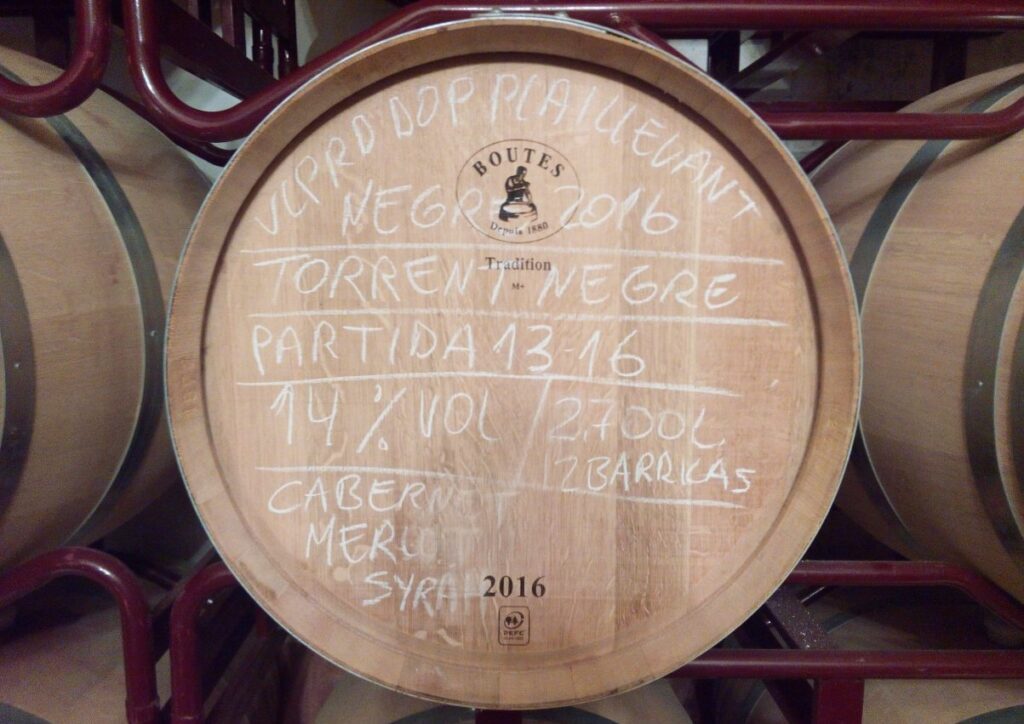 VCPRD DOP PLA I LLEVANT
BOUTES
NEGRE 2016
Depuis 1880
Tradition
M+
TORRENT NEGRE
PARTIDA 13-16
14 % VOL / 2,700L.
12 BARRICAS
CABERNET
MERLOT
SYRAH
2016
PEFC